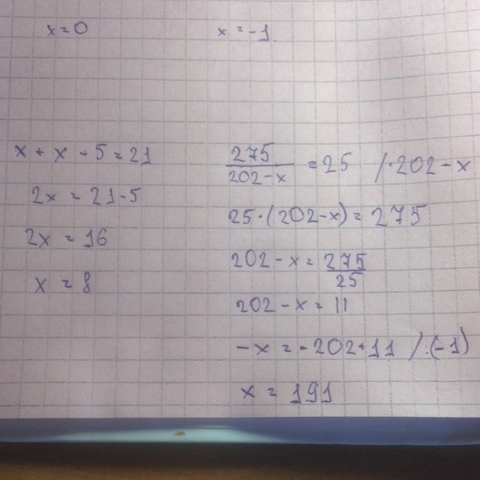 x=0
x=-1
x + x + 5 = 21
2x = 21-5
2x = 16
x = 8
275/202-x = 25 /·202-x
25·(202-x) = 275
202-x = 275/25
202-x = 11
-x = -202+11 /:(-1)
x = 191